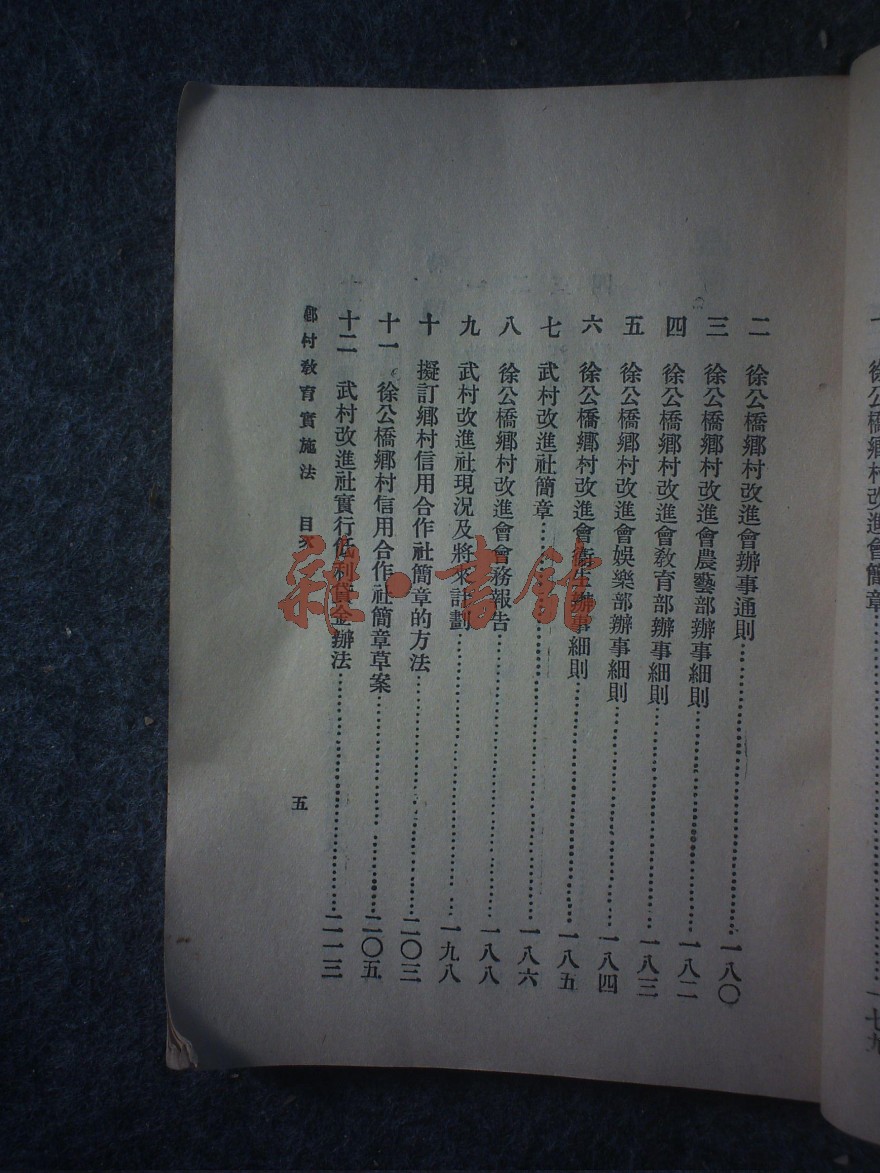 一 徐公橋鄉村改進會簡章……一七九
二 徐公橋鄉村改進會辦事通則……一八〇
三 徐公橋鄉村改進會農藝部辦事細則……一八二
四 徐公橋鄉村改進會教育部辦事細則……一八三
五 徐公橋鄉村改進會娛樂部辦事細則……一八四
六 徐公橋鄉村改進會衞生辦事細則……一八五
七 武村改進社簡章……一八六
八 徐公橋鄉村改進會會務報告……一八八
九 武村改進社現況及將來計劃……一九八
十 擬訂鄉村信用合作社簡章的方法……二〇三
十一 徐公橋鄉村信用合作社簡章草案……二〇五
十二 武村改進社實行低利貸金辦法……二一三
鄉村教育實施法 目次 五
雜·書館